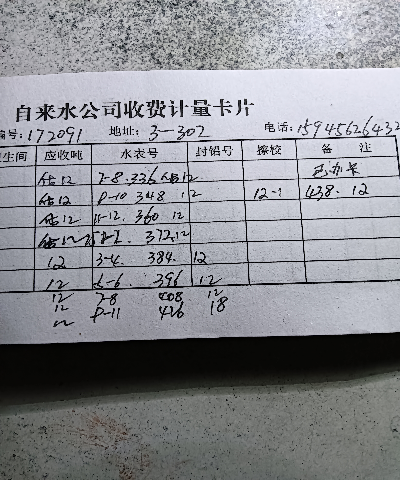 自来水公司收费计量卡片
编号: 172091 地址: 3-302 电话: 15945626432
生间 应收吨 水表号 封铅号 擦校 备 注
估12 7-8. 336 估12
估12 9-10 348 12 12-1 438. 12
估12 11-12. 360 12
372. 12
12 3-4. 384. 12
12 5-6. 396 12
12 7-8 408 12
12 9-11 426 18